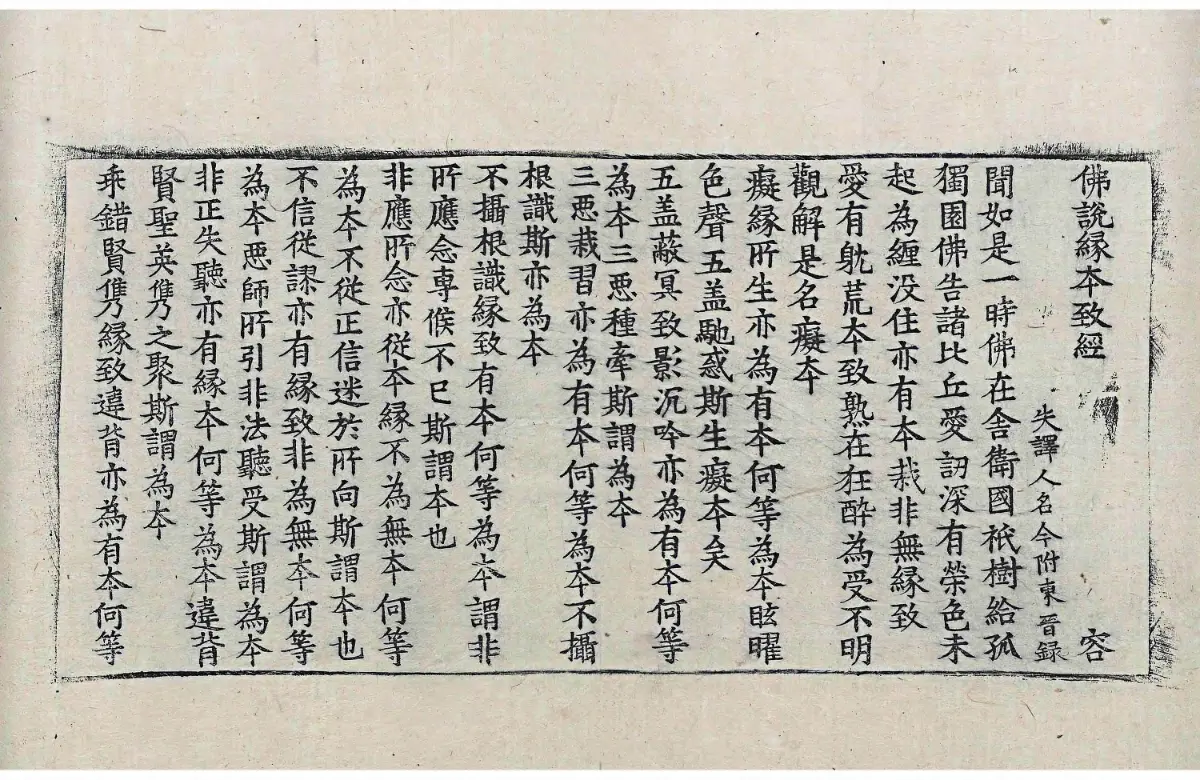 佛說緣本致經 容
失譯人名今附東晉錄
聞如是一時佛在舍衛國祇樹給孤
獨園佛告諸比丘愛訒深有榮色未
起為纏没住亦有本栽非無緣致
愛有躭荒本致熟在狂醉為受不明
觀解是名癡本
癡緣所生亦為有本何等為本眩曜
色聲五盖馳惑斯生癡本矣
五盖蔽冥致影沉吟亦為有本何等
為本三惡種牽斯謂為本
三惡栽習亦為有本何等為本不攝
根識斯亦為本
不攝根識緣致有本何等為本謂非
所應念専候不已斯謂本也
非應所念亦從本緣不為無本何等
為本不從正信迷於所向斯謂本也
不信從謬亦有緣致非為無本何等
為本惡師所引非法聽受斯謂為本
非正失聽亦有緣本何等為本違背
賢聖英儁之聚斯謂為本
乘錯賢儁緣致違背亦為有本何等